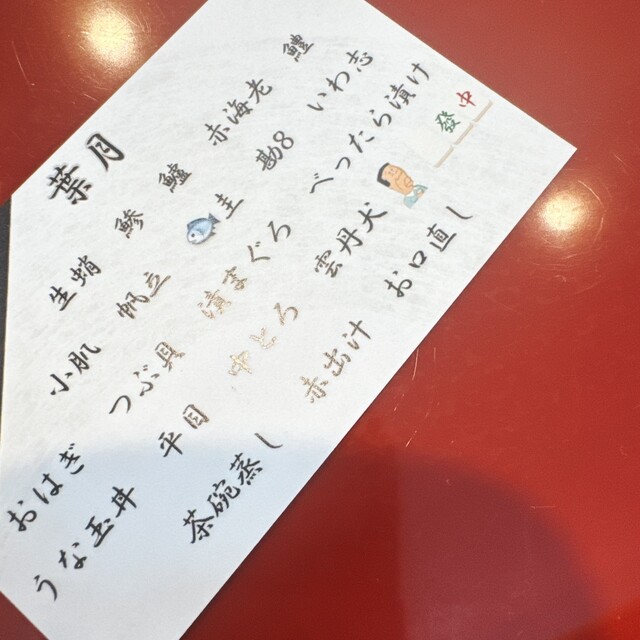 葉月
生蛸 鯵 鱸 赤海老 鱧
小肌 帆立 圭 勘8 いわ志
つぶ貝 漬まぐろ べったら漬け 發中
おはぎ 平目 中とろ 雲丹犬
うな玉丼 茶碗蒸し 赤出汁 お口直し